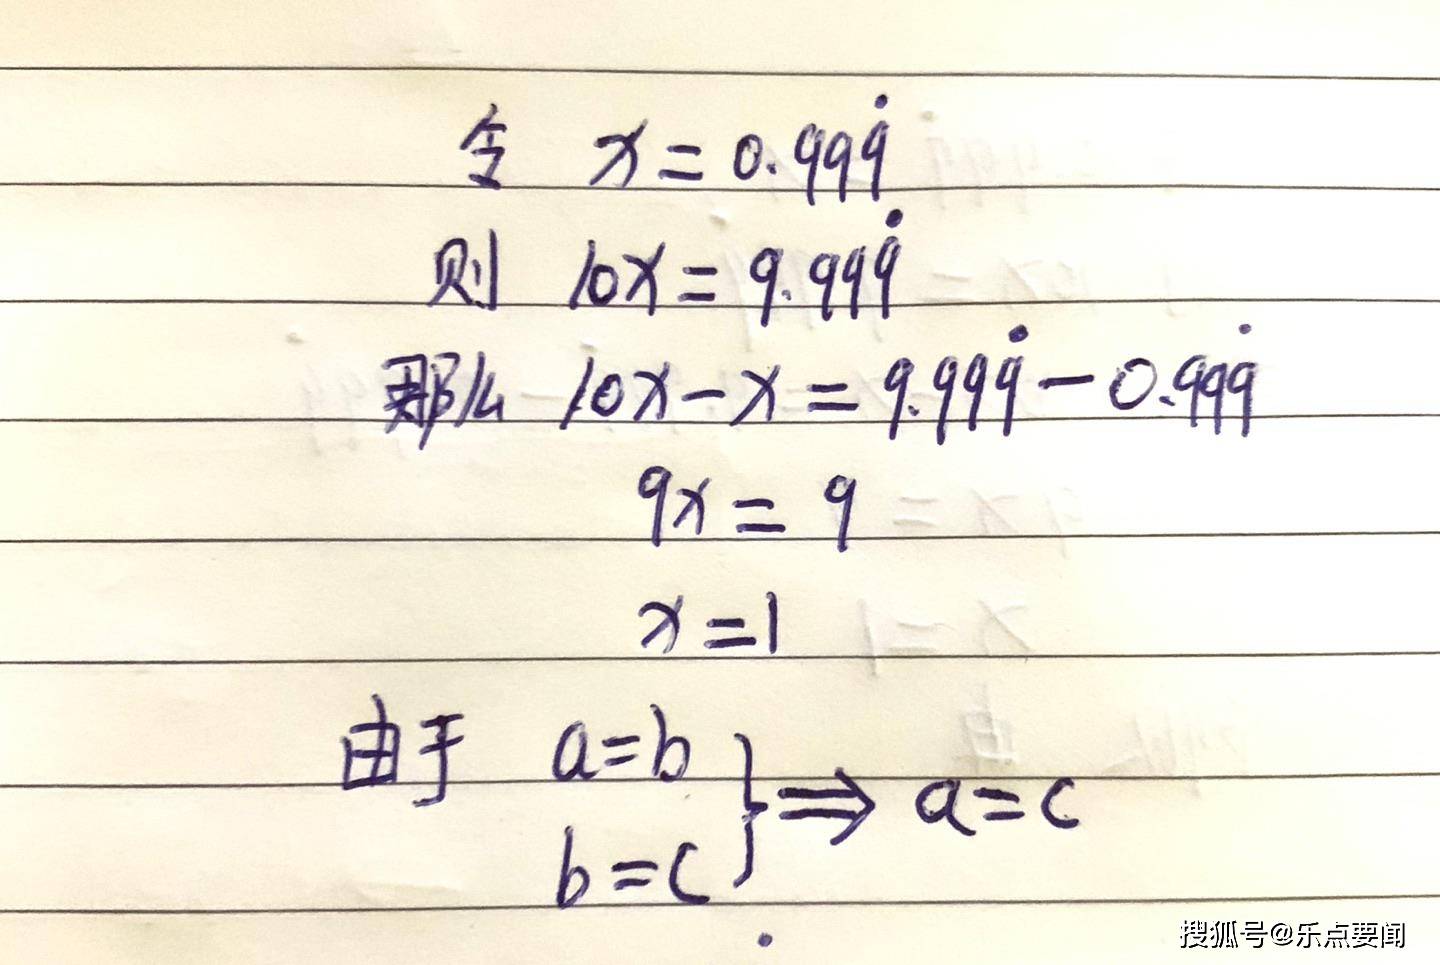 令 x=0.999̇
则 10x=9.999̇
那么 10x-x=9.999̇-0.999̇
9x=9
x=1
由于 a=b
b=c
} ⟹ a=c
搜狐号@乐点要闻